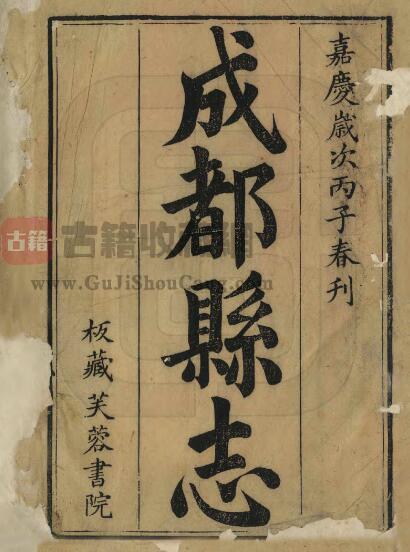 嘉慶歲次丙子春刊
成都縣志
板藏芙蓉書院
古籍 古籍收藏網
www.GuJiShouCang.com